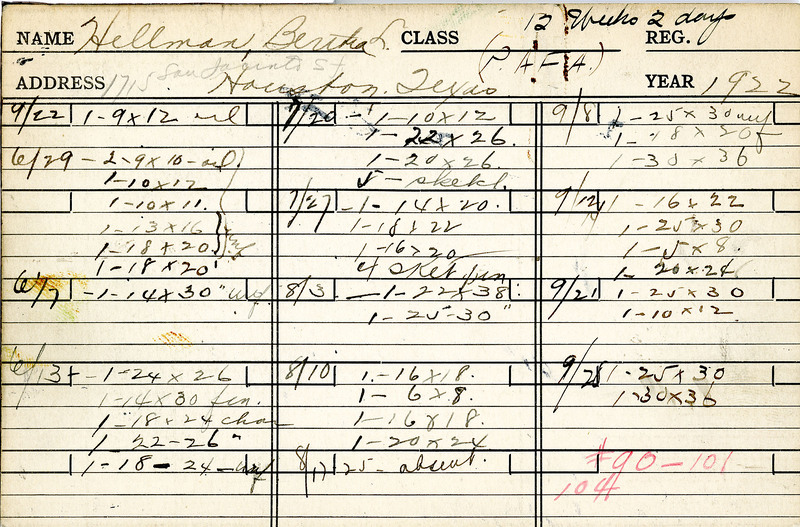 12 Weeks 2 days
NAME Hellman, Bertha L. CLASS (P.A.F.A.) REG.
ADDRESS 1715 San Jacinto St Houston, Texas YEAR 1922
9/22 1-9x12 oil
6/29 - 2-9x10-oil
1-10x12
1-10x11.
1-13x16
1-18x20
1-18x20
6/7 -1-14x30" unf.
6/13+ -1-24x26
1-14x30 fin.
1-18x24 char
1-22-26"
1-18-24-unf
7/20 -1-10x12
1-22x26.
1-20x26.
5-sketch.
7/27 -1-14x20.
1-18x22
1-16x20
4 sket fin
8/3 -1-22x38"
1-25-30"
8/10 1-16x18.
1-6x8.
1-16x18.
1-20x24
8/17 25-absent.
9/8 1-25x30 unf
1-18x20 f
1-30x36
9/12 1-16x22
1-25x30
1-5x8.
1-20x24
9/21 1-25x30
1-10x12.
9/28 1-25x30
1-30x36
#90-101-
104